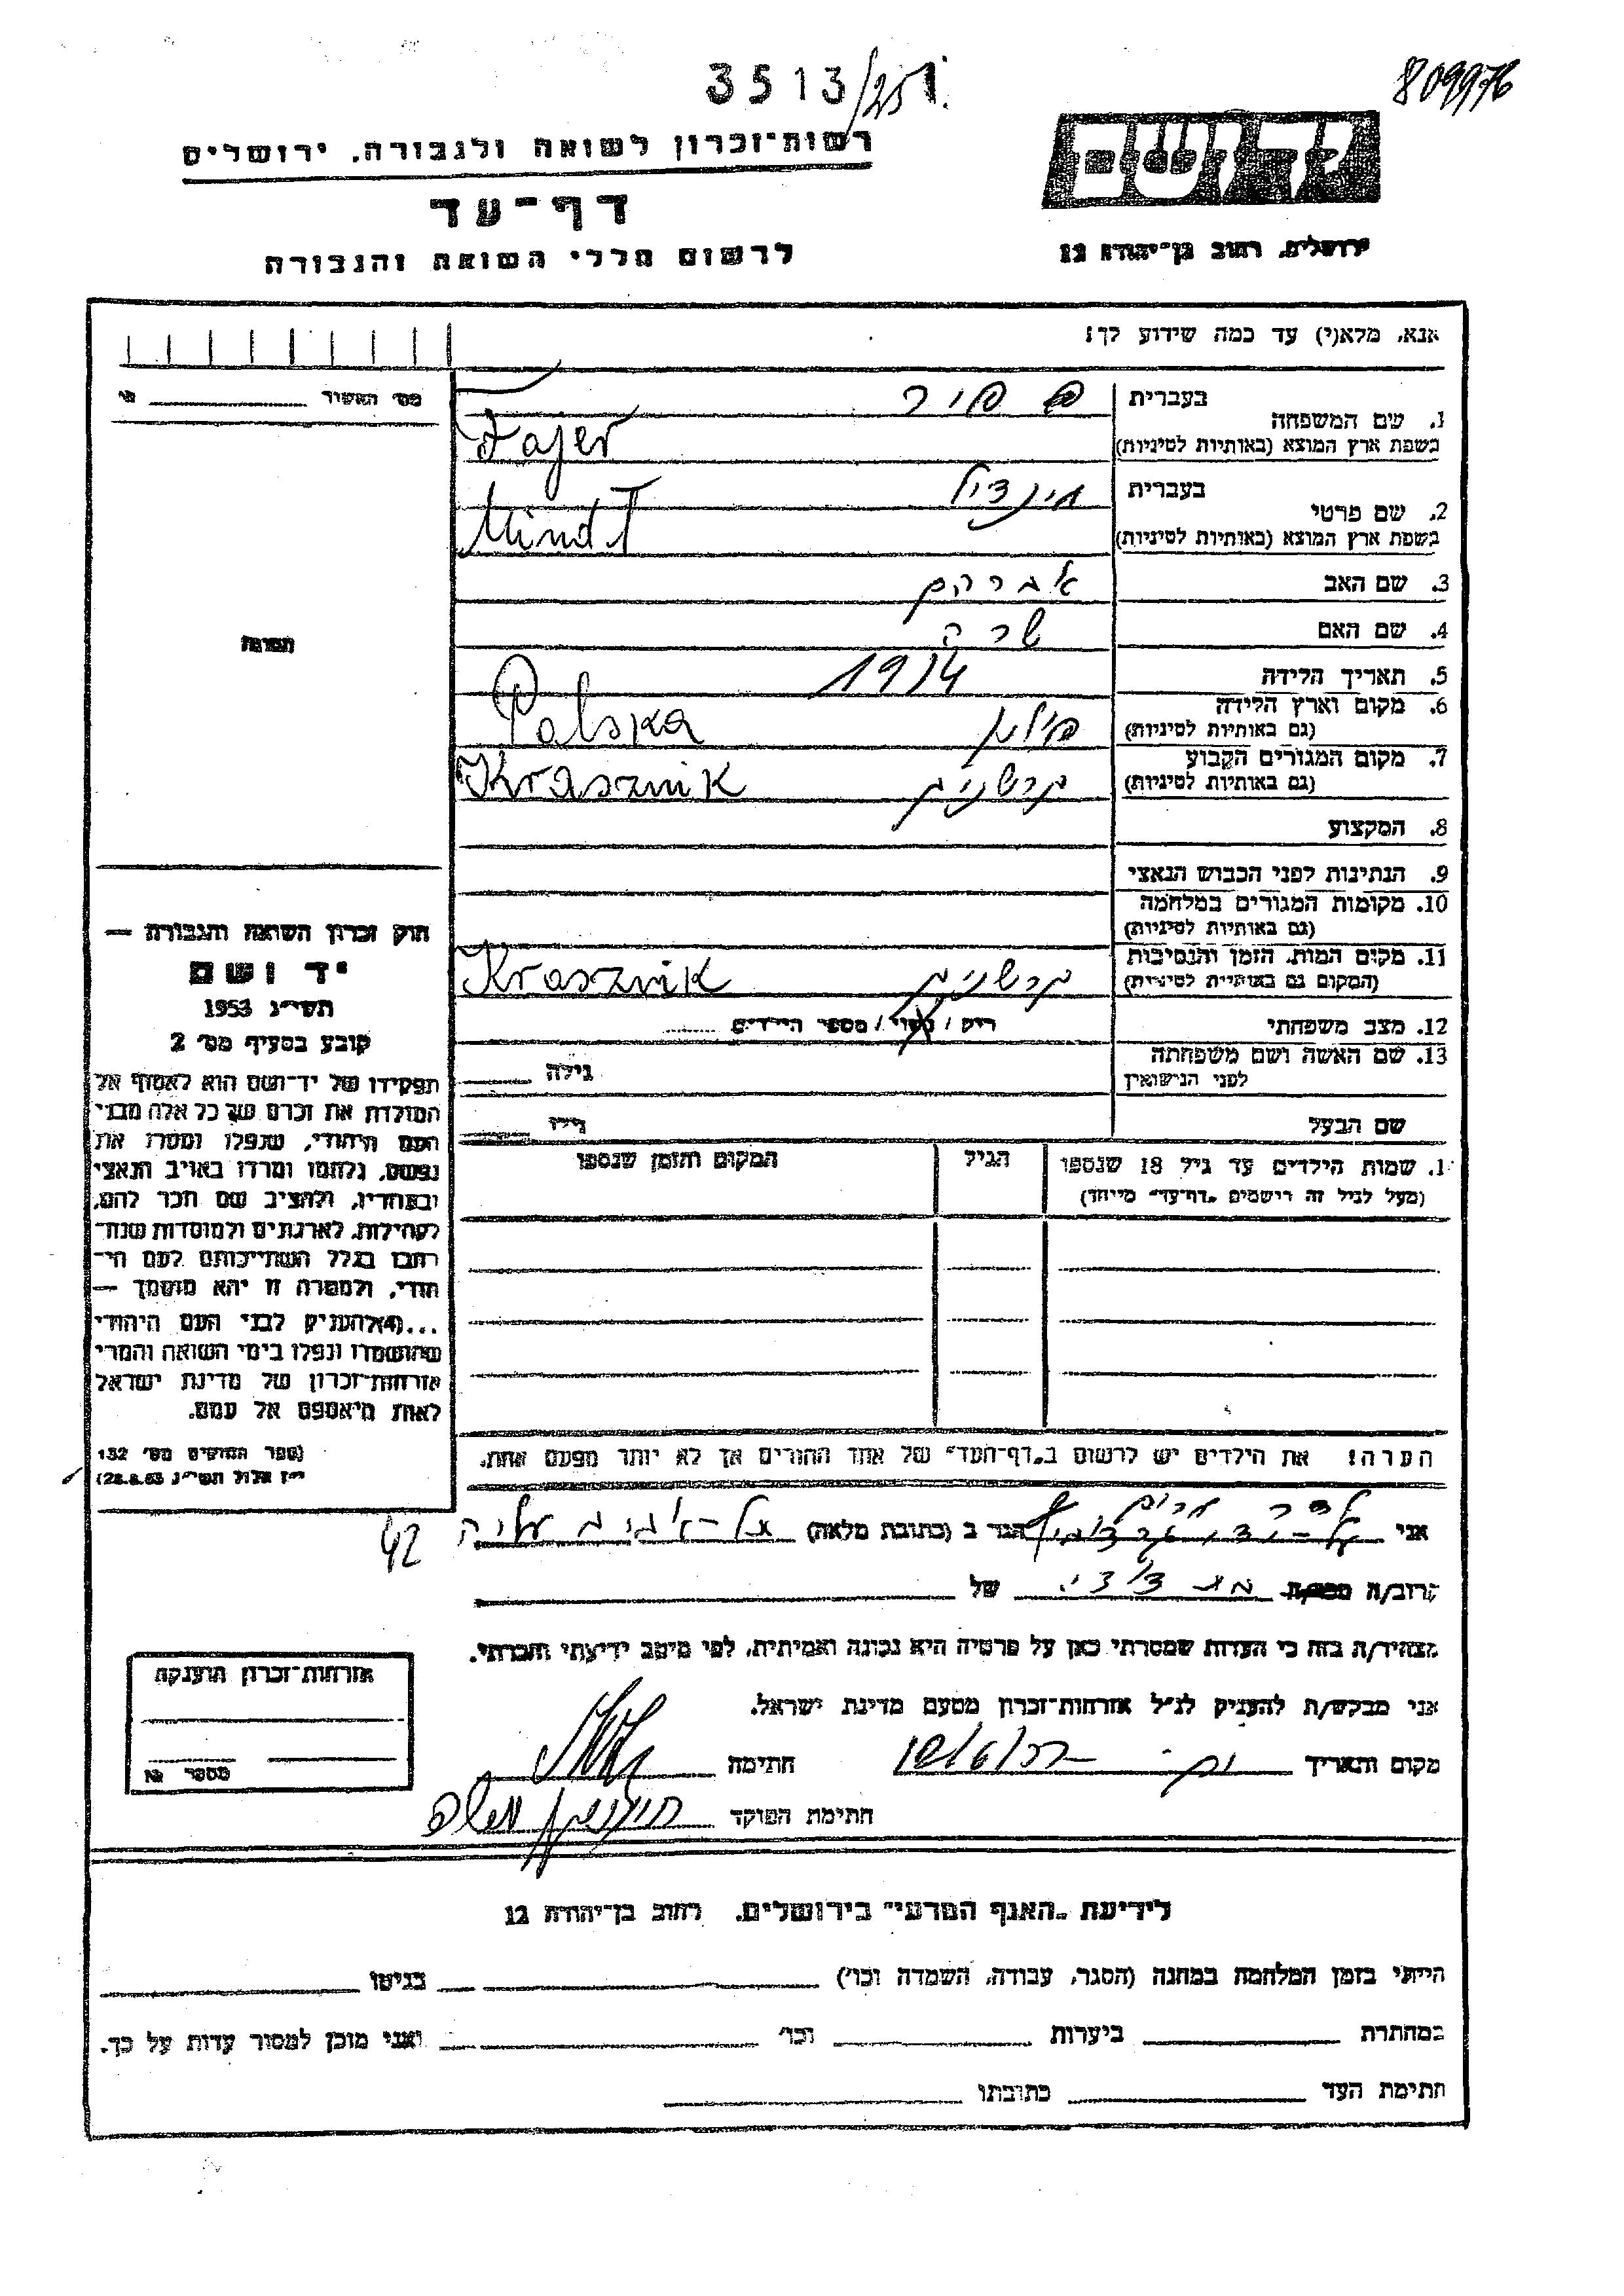 3513/25 1.
809976
רשות־זכרון לשואה ולגבורה, ירושלים
דף־עד
לרשום חללי השואה והגבורה
יד ושם
ירושלים, רחוב בן־יהודה 12
אנא, מלא(י) עד כמה שידוע לך!
מס' האשיר
1. שם המשפחה
בעברית פייר
בשפת ארץ המוצא (באותיות לטיניות) Fajer
2. שם פרטי
בעברית מינדיל
בשפת ארץ המוצא (באותיות לטיניות)
3. שם האב אברהם
4. שם האם שרה
5. תאריך הלידה 1914
6. מקום וארץ הלידה פולין Polska
(גם באותיות לטיניות)
7. מקום המגורים הקבוע קרשניק Krasznik
(גם באותיות לטיניות)
8. המקצוע
9. הנתינות לפני הכבוש הנאצי
10. מקומות המגורים במלחמה
(גם באותיות לטיניות)
11. מקום המות, הזמן והנסיבות קרשניק Krasznik
(המקום גם באותיות לטיניות)
12. מצב משפחתי רוק / נשוי / מספר הילדים
13. שם האשה ושם משפחתה
לפני הנישואין
גילה
שם הבעל גילו
תמונה
חוק זכרון השואה והגבורה —
יד ושם
תשי״ג 1953
קובע בסעיף מס' 2
תפקידו של יד־ושם הוא לאסוף אל
המולדת את זכרם של כל אלה מבני
העם היהודי, שנפלו ומסרו את
נפשם, נלחמו ומרדו באויב הנאצי
ובעוזריו, ולהציב שם וזכר להם,
לקהילות, לארגונים ולמוסדות שנח־
רבו בגלל השתייכותם לעם הי־
הודי, ולמטרה זו יהא מוסמך —
...(4)להעניק לבני העם היהודי
שהושמדו ונפלו בימי השואה והמרי
אזרחות־זכרון של מדינת ישראל
לאות היאספם אל עמם.
(ספר החוקים מס' 132
י״ז אלול תשי״ג 28.8.53)
1. שמות הילדים עד גיל 18 שנספו
(מעל לגיל זה רושמים ״דף־עד״ מיוחד)
הגיל
המקום והזמן שנספו
הערה! את הילדים יש לרשום ב״דף־העד״ של אחד ההורים אך לא יותר מפעם אחת.
אני
הגר ב (כתובת מלאה)
42
קרוב/ה מכר/ה של
מצהיר/ה בזה כי העדות שמסרתי כאן על פרטיה היא נכונה ואמיתית, לפי מיטב ידיעתי והכרתי.
אני מבקש/ת להעניק לנ״ל אזרחות־זכרון מטעם מדינת ישראל.
מקום ותאריך
חתימה
חתימת הפוקד
אזרחות־זכרון הוענקה
מספר
לידיעת ״האגף המדעי״ בירושלים, רחוב בן־יהודה 12
הייתי בזמן המלחמה במחנה (הסגר, עבודה, השמדה וכו') בגיטו
במחתרת ביערות וכו' ואני מוכן למסור עדות על כך.
חתימת העד כתובתו